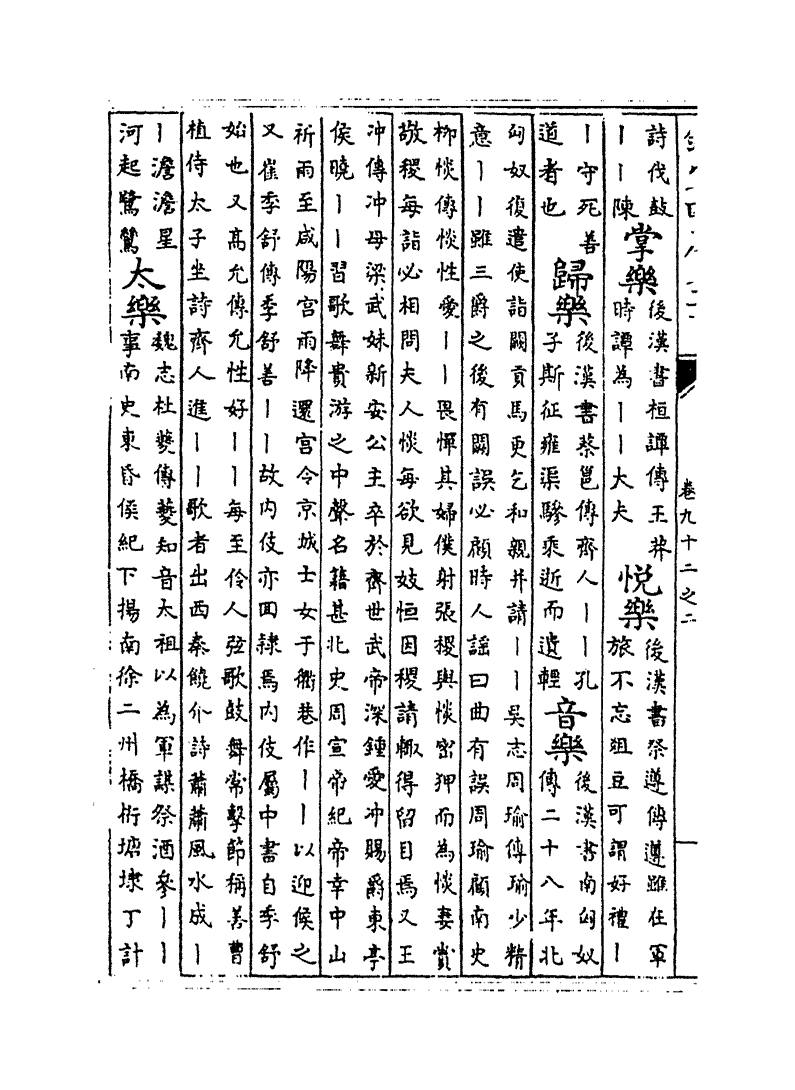 卷九十二之二
詩伐鼓
｜｜陳
掌樂
後漢書桓譚傳王莽
時譚為｜｜大夫
悅樂
後漢書祭遵傳遵雖在軍
旅不忘俎豆可謂好禮｜
｜守死善
道者也
歸樂
後漢書蔡邕傳齊人｜｜孔
子斯征雍渠驂乘逝而遺輕
音樂
後漢書南匈奴
傳二十八年北
匈奴復遣使詣闕貢馬更乞和親并請｜｜吳志周瑜傳瑜少精
意｜｜雖三爵之後有闕誤必顧時人謠曰曲有誤周瑜顧南史
柳惔傳惔性愛｜｜畏憚其婦僕射張稷與惔密狎而為惔妻賞
敬稷每詣必相問夫人惔每欲見妓恒因稷請輙得留目焉又王
冲傳冲母梁武妹新安公主卒於齊世武帝深鍾愛冲賜爵東亭
侯曉｜｜習歌舞貴游之中聲名籍甚北史周宣帝紀帝幸中山
祈雨至咸陽宫雨降還宫令京城士女于衢巷作｜｜以迎候之
又崔季舒傳季舒善｜｜故内伎亦回隷焉内伎屬中書自季舒
始也又高允傳允性好｜｜每至伶人弦歌鼓舞常擊節稱善曹
植侍太子坐詩齊人進｜｜歌者出西秦饒介詩蕭蕭風水成｜
｜澹澹星
河起鷺鶯
太樂
魏志杜夔傳夔知音太祖以為軍謀祭酒參｜｜
事南史東昏侯紀下揚南徐二州橋桁塘埭丁計